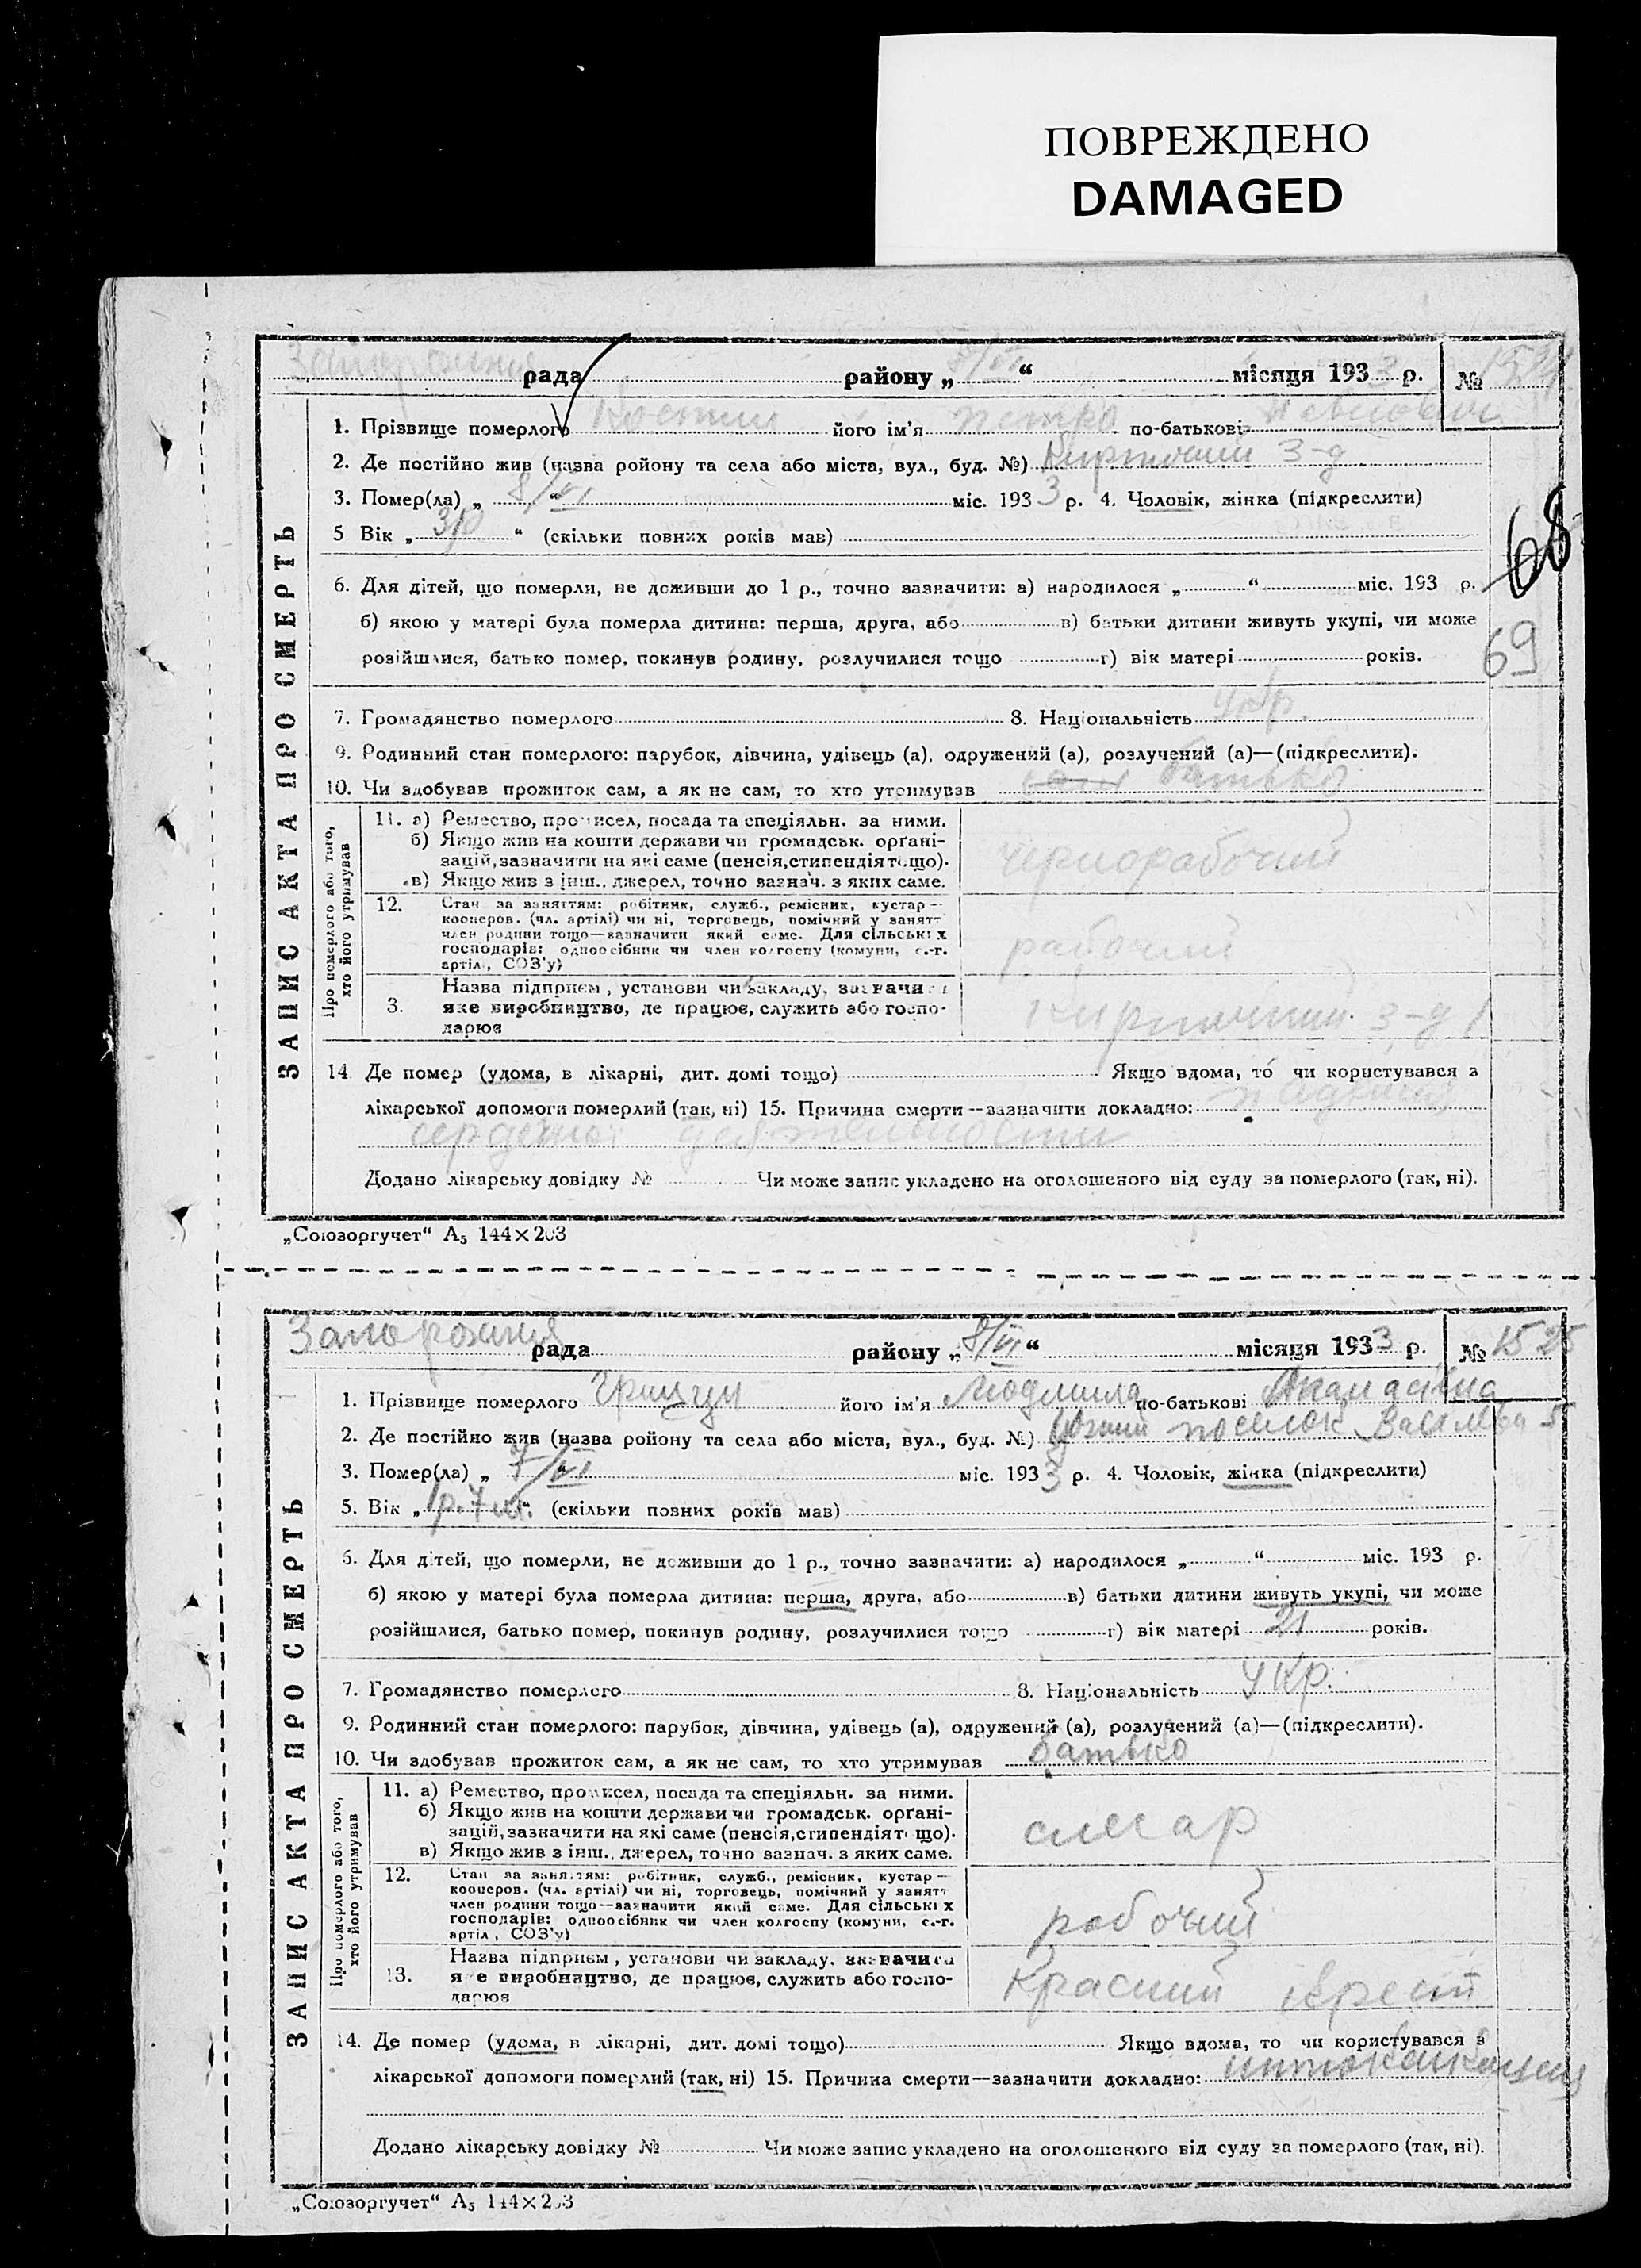 ПОВРЕЖДЕНО
DAMAGED
рада району „ 8/VI “ місяця 1933 р. № 1524
1. Прізвище померлого Костин його ім'я Петро по-батькові
2. Де постійно жив (назва ройону та села або міста, вул., буд. №) Кирпичний З-д
3. Помер(ла) „ 8/VI “ міс. 1933 р. 4. Чоловік, жінка (підкреслити)
5 Вік „ “ (скільки повних років мав)
68
6. Для дітей, що померли, не доживши до 1 р., точно зазначити: а) народилося „ “ міс. 193 р.
б) якою у матері була померла дитина: перша, друга, або в) батьки дитини живуть укупі, чи може
розійшлися, батько помер, покинув родину, розлучилися тощо г) вік матері років.
69
7. Громадянство померлого 8. Національність укр.
9. Родинний стан померлого: парубок, дівчина, удівець (а), одружений (а), розлучений (а)—(підкреслити).
10. Чи здобував прожиток сам, а як не сам, то хто утримував батько
ЗАПИС АКТА ПРО СМЕРТЬ
Про померлого або того, хто його утримував
11. а) Ремество, промисел, посада та спеціяльн. за ними.
б) Якщо жив на кошти держави чи громадськ. орґані-
зацій, зазначити на які саме (пенсія, стипендія тощо).
в) Якщо жив з інш., джерел, точно зазнач. з яких саме.
чернорабочий
12. Стан за заняттям: робітник, служб., ремісник, кустар—
кооперов. (чл. артілі) чи ні, торговець, помічний у занятт
член родини тощо—зазначити який саме. Для сільських
господарів: одноосібник чи член колгоспу (комуни, с.-г.
артіл., СОЗ'у)
рабочий
3. Назва підприєм, установи чи закладу, зазначити
яке виробництво, де працює, служить або госпо-
дарює
Кирпичний з-д 1
14 Де помер (удома, в лікарні, дит. домі тощо) Якщо вдома, то чи користувався з
лікарської допомоги померлий (так, ні) 15. Причина смерти—зазначити докладно: падение
сердечной деятельности
Додано лікарську довідку № Чи може запис укладено на оголошеного від суду за померлого (так, ні).
„Союзоргучет“ А₅ 144×203
Запорожжя рада району „ 8/VI “ місяця 1933 р. № 1525
1. Прізвище померлого Грицун його ім'я Людмила по-батькові
2. Де постійно жив (назва ройону та села або міста, вул., буд. №) поселок
3. Помер(ла) „ 7/VI “ міс. 1933 р. 4. Чоловік, жінка (підкреслити)
5. Вік „ 1р. 7 м. “ (скільки повних років мав)
6. Для дітей, що померли, не доживши до 1 р., точно зазначити: а) народилося „ “ міс. 193 р.
б) якою у матері була померла дитина: перша, друга, або в) батьки дитини живуть укупі, чи може
розійшлися, батько помер, покинув родину, розлучилися тощо г) вік матері 21 років.
7. Громадянство померлого 8. Національність укр.
9. Родинний стан померлого: парубок, дівчина, удівець (а), одружений (а), розлучений (а)—(підкреслити).
10. Чи здобував прожиток сам, а як не сам, то хто утримував батько
ЗАПИС АКТА ПРО СМЕРТЬ
Про померлого або того, хто його утримував
11. а) Ремество, промисел, посада та спеціяльн. за ними.
б) Якщо жив на кошти держави чи громадськ. орґані-
зацій, зазначити на які саме (пенсія, стипендія тощо).
в) Якщо жив з інш., джерел, точно зазнач. з яких саме.
слесар
12. Стан за заняттям: робітник, служб., ремісник, кустар—
кооперов. (чл. артілі) чи ні, торговець, помічний у занятт
член родини тощо—зазначити який саме. Для сільських
господарів: одноосібник чи член колгоспу (комуни, с.-г.
артіл., СОЗ'у)
робочий
13. Назва підприєм, установи чи закладу, зазначити
яке виробництво, де працює, служить або госпо-
дарює
Красний крест
14. Де помер (удома, в лікарні, дит. домі тощо) Якщо вдома, то чи користувався з
лікарської допомоги померлий (так, ні) 15. Причина смерти—зазначити докладно: интоксикация
Додано лікарську довідку № Чи може запис укладено на оголошеного від суду за померлого (так, ні).
„Союзоргучет“ А₅ 144×203